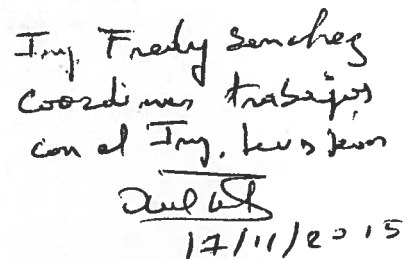 Ing. Fredy Sanchez
Coordinar trabajos
con el Ing.
17/11/2015